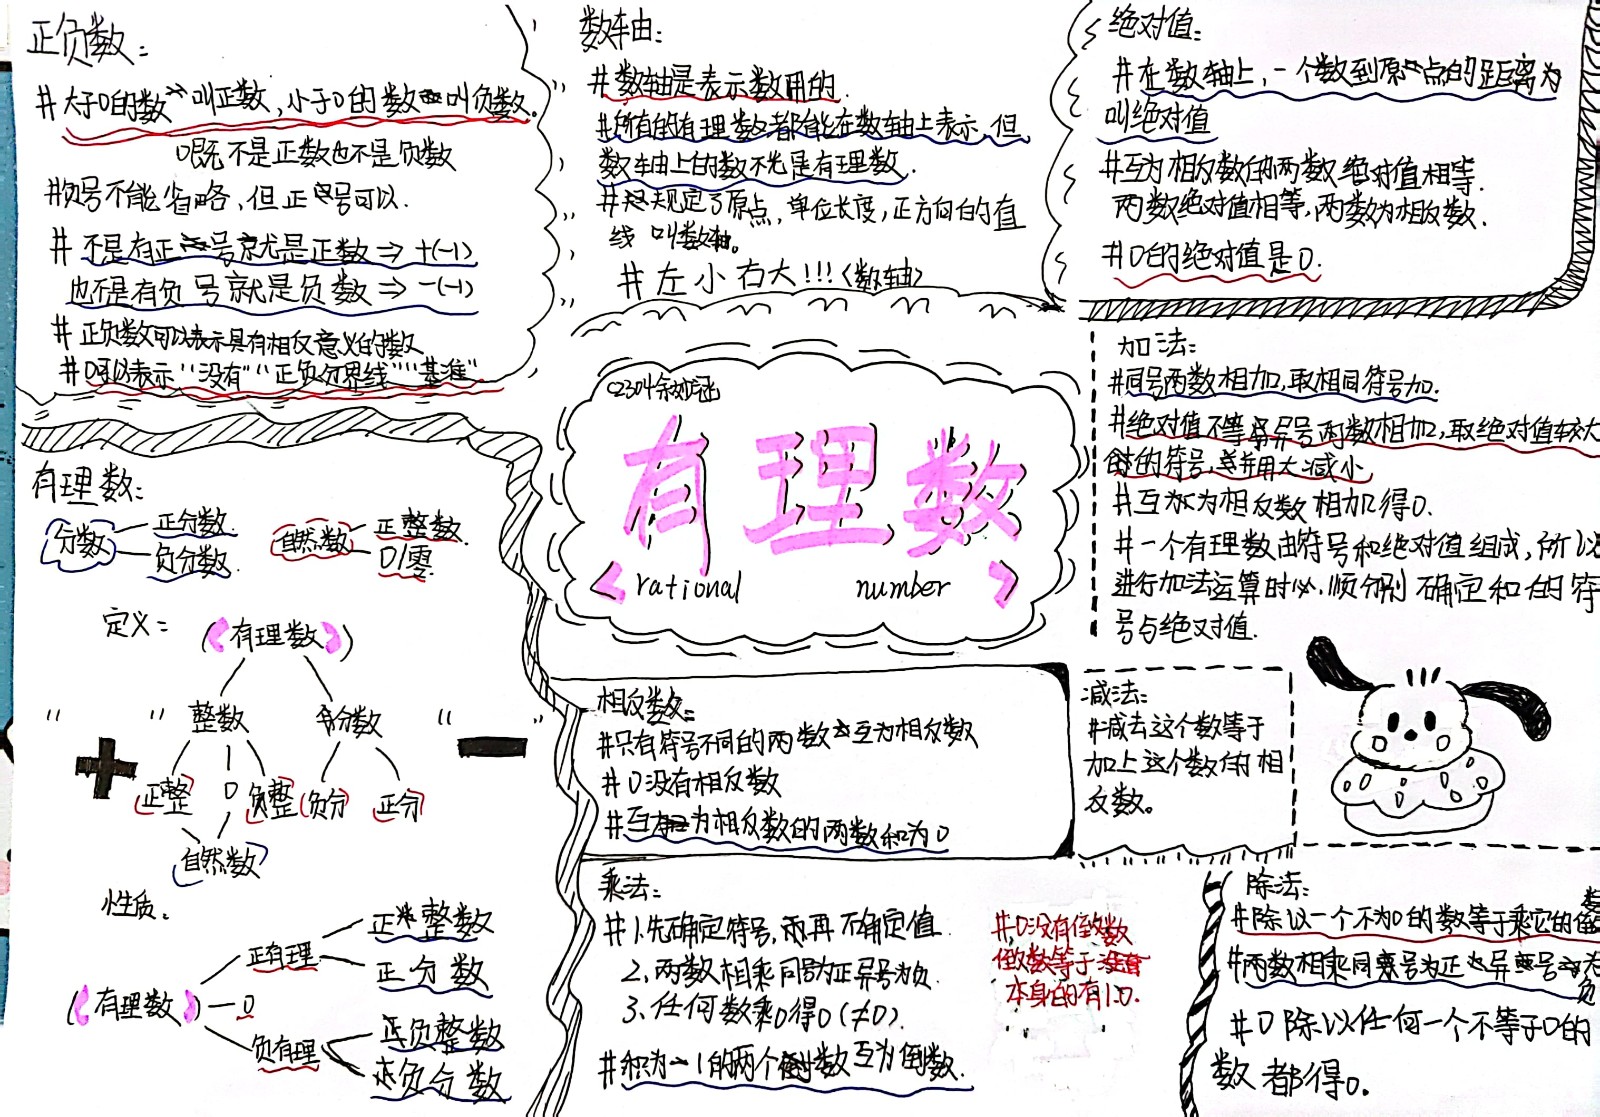 正负数:
#大于0的数叫正数,小于0的数叫负数.
0既不是正数也不是负数
#负号不能省略,但正号可以.
#不是有正号就是正数⇒+(-1)
也不是有负号就是负数⇒-(-1)
#正负数可以表示具有相反意义的数
#0可以表示"没有""正负分界线""基准"
数轴:
#数轴是表示数用的.
#所有的有理数都能在数轴上表示,但
数轴上的数不光是有理数.
#规定了原点,单位长度,正方向的直
线叫数轴。
#左小右大!!!(数轴)
绝对值:
#在数轴上,一个数到原点的距离为
叫绝对值
#互为相反数的两数绝对值相等.
两数绝对值相等,两数为相反数.
#0的绝对值是0.
C2304
有理数
rational number
加法:
#同号两数相加,取相同符号加.
#绝对值不等异号两数相加,取绝对值较大
的符号,并用大减小
#互为相反数相加得0.
#一个有理数由符号和绝对值组成,所以
进行加法运算时必顺分别确定和的符
号与绝对值.
有理数:
分数
正分数
负分数
自然数
正整数
0/零
定义:
有理数
" + " 整数 分数 " — "
正整 0 负整 负分 正分
自然数
性质.
有理数
正有理
正整数
正分数
0
负有理
负整数
负分数
相反数:
#只有符号不同的两数互为相反数
#0没有相反数
#互为相反数的两数和为0
减法:
#减去这个数等于
加上这个数的相
反数。
乘法:
#1.先确定符号,再确定值.
2.两数相乘同号为正异号为负.
3.任何数乘0得0(≠0).
#积为1的两个数互为倒数.
#0没有倒数
倒数等于
本身的有1.0.
除法:
#除以一个不为0的数等于乘它的倒数
#两数相乘同号为正异号为负
#0除以任何一个不等于0的
数都得0。